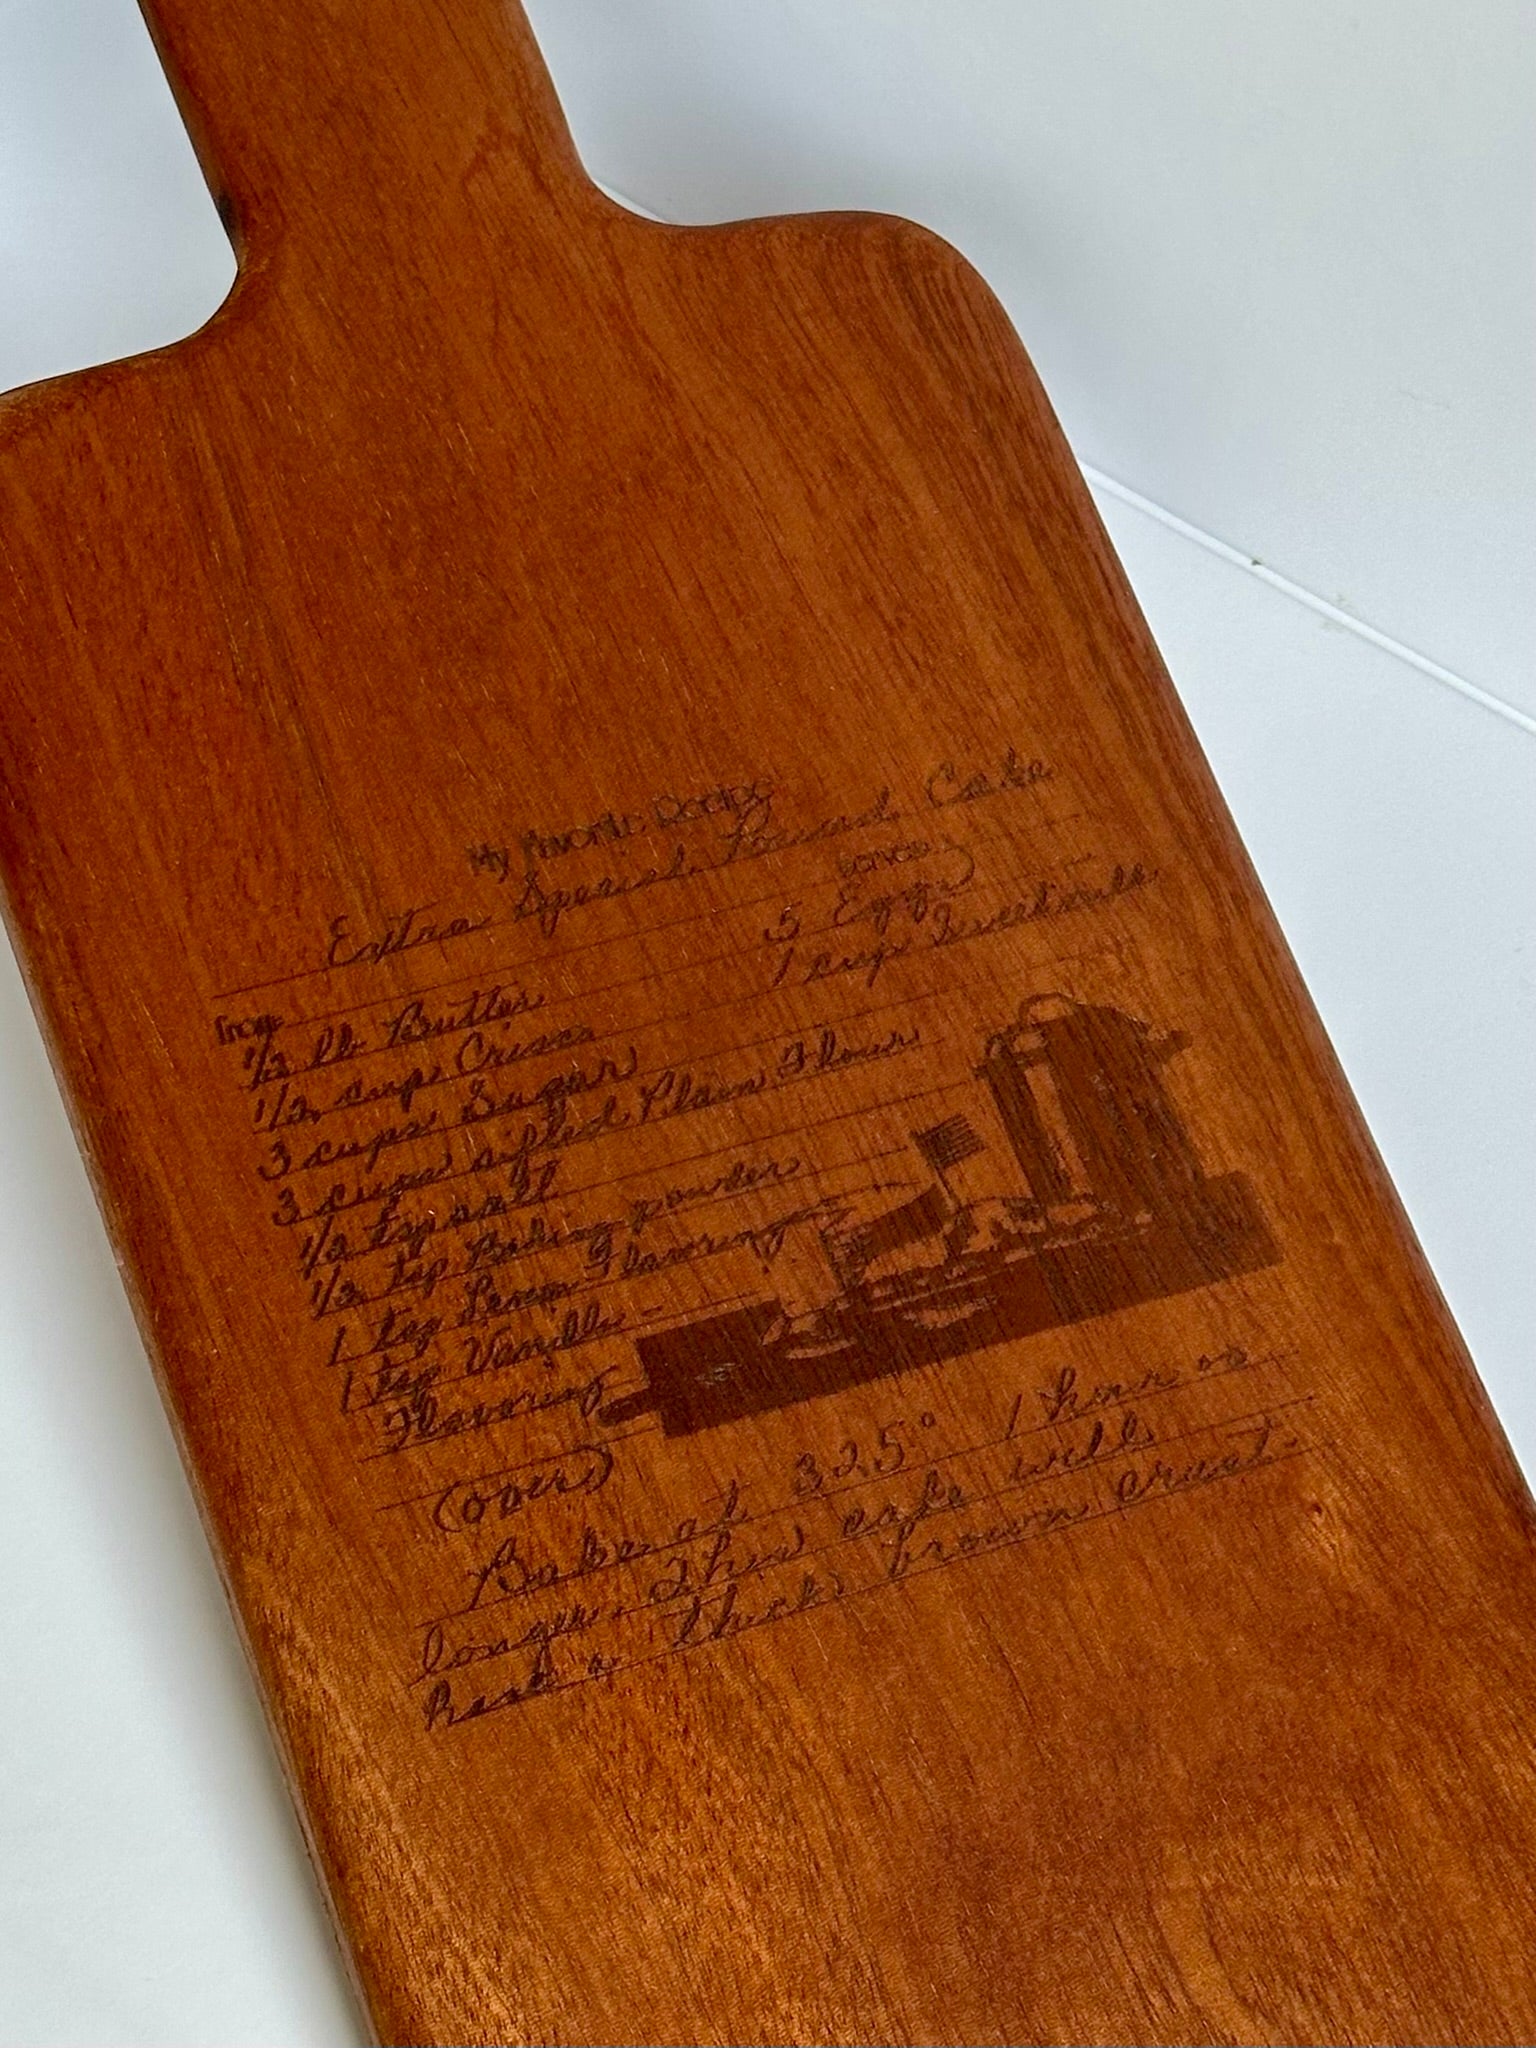 My Favorite Recipe
Extra Special Pound Cake
serves
from
5 Eggs
1 cup Sweetmilk
1/2 lb Butter
1/2 cup Crisco
3 cups Sugar
3 cups sifted Plain Flour
1/2 tsp salt
1/2 tsp Baking powder
1 tsp Lemon Flavoring
1 tsp Vanilla
Flavoring
(over)
Bake at 325° 1 hour or
longer. This cake will
have a thick brown crust.